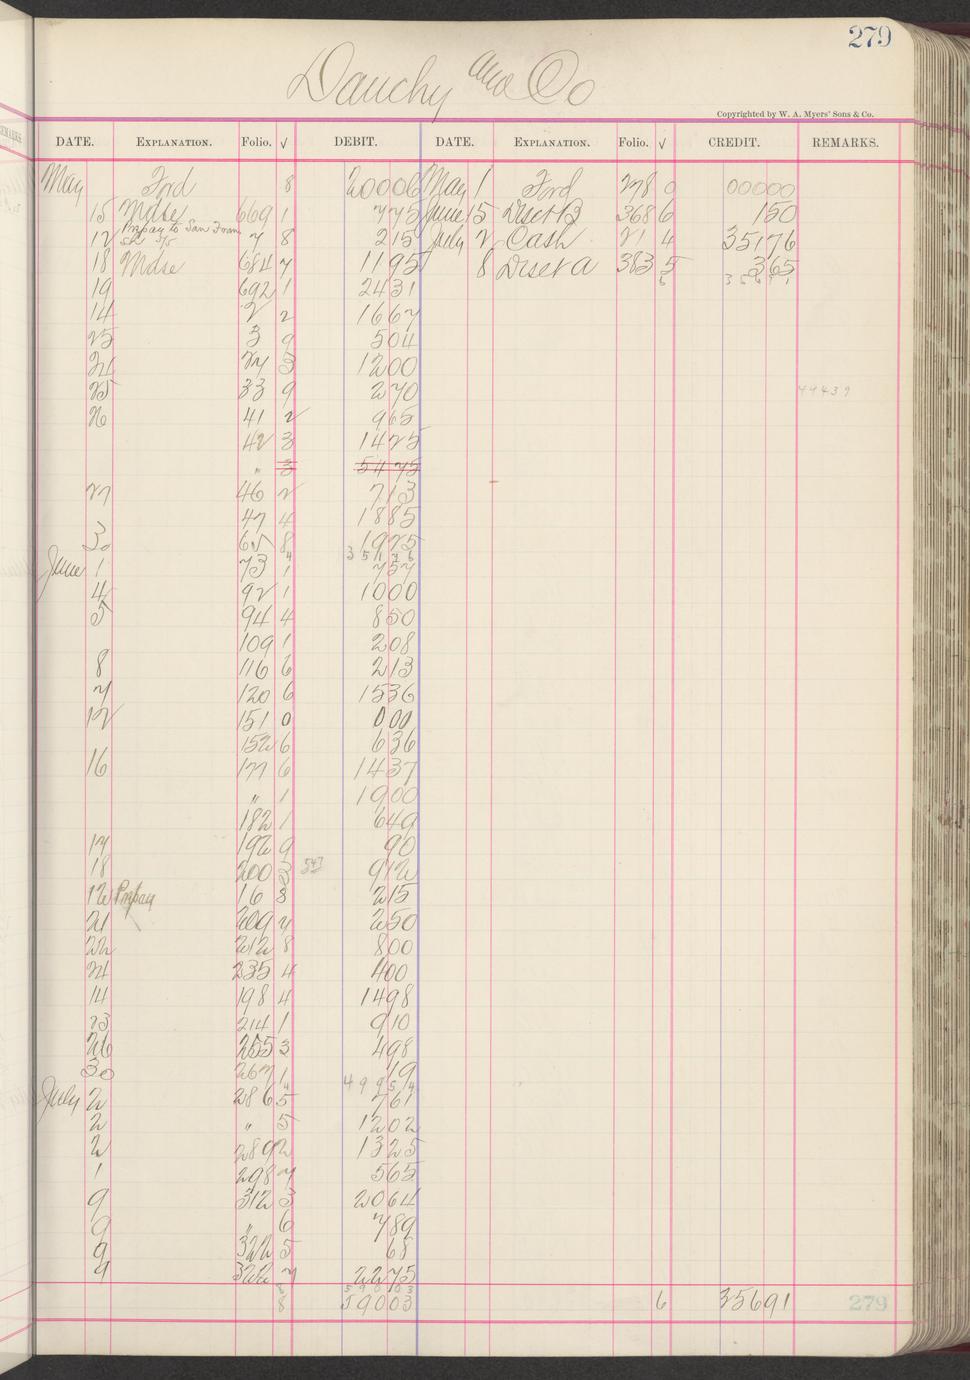 279
Dauchy and Co
Copyrighted by W. A. Myers' Sons & Co.
DATE. EXPLANATION. Folio. √ DEBIT. DATE. EXPLANATION. Folio. √ CREDIT. REMARKS.
May Frd 8 20006 May 1 Frd 278 0 00000
15 Mdse 669 1 775 June 15 Disct B 368 6 150
12 Prepay to San Fran 7 8 215 July 2 Cash 21 4 35176
18 Mdse 684 7 1195 8 Disct A 383 5 365
6 35691
19 692 1 2431
14 2 2 1667
25 3 9 504
24 27 3 1200
25 33 9 270 44439
26 41 2 965
42 3 1425
" 3 5475
27 46 2 713
47 4 1885
30 65 8 1925
4 35176
June 1 73 1 757
4 92 1 1000
5 94 4 850
109 1 208
8 116 6 213
7 120 6 1536
12 151 0 000
152 6 636
16 177 6 1437
" 1 1900
182 1 649
17 192 9 90
18 200 3 547 912
12 Prepay 16 8 215
21 209 7 250
22 212 8 800
24 235 4 400
14 198 4 1498
23 214 1 910
26 255 3 498
30 267 1 19
4 49954
July 2 286 5 761
2 " 5 1202
2 289 2 1325
1 298 7 565
9 312 3 2064
9 " 6 789
9 322 5 68
9 322 7 2275
8 59003
8 59003 6 35691 279